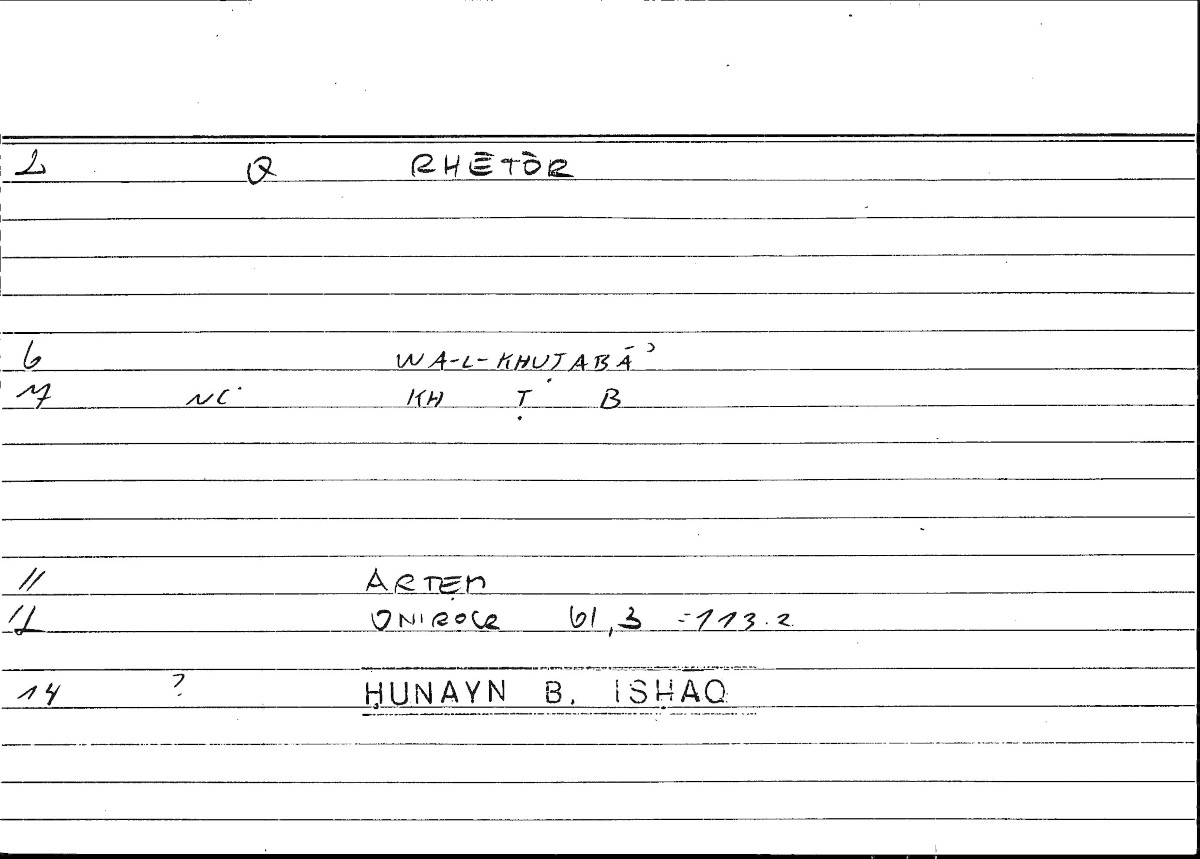 2 Q RHĒTŌR
6 WA-L-KHUṬABĀʾ
7 NC KH Ṭ B
11 ARTEM
12 ONIROCR 61,3 =113.2
14 ? ḤUNAYN B. ISḤAQ